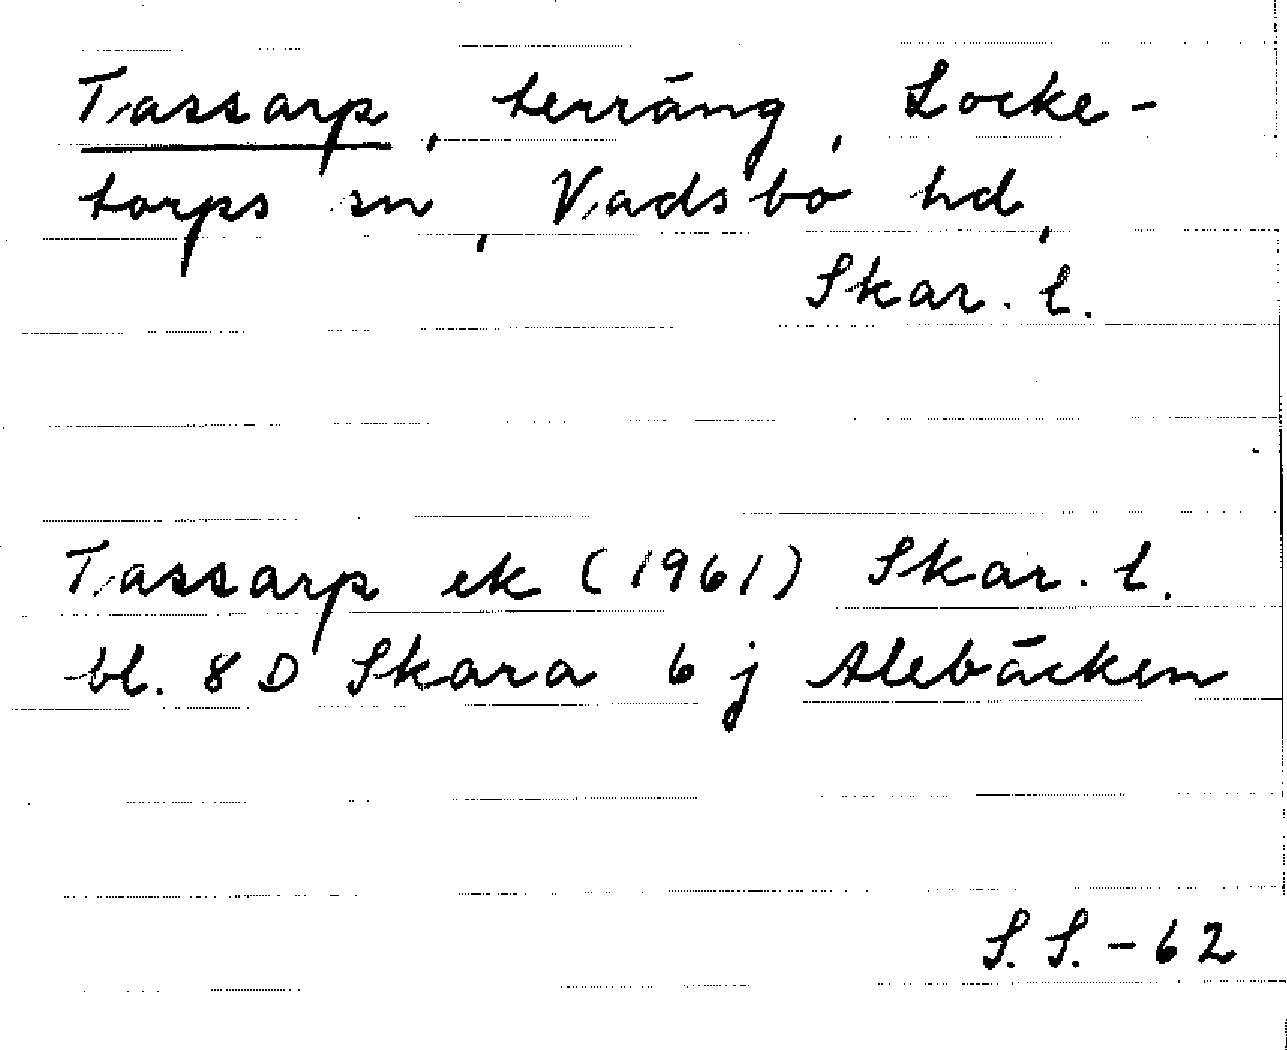 Tassarp, terräng, Locke-
torps sn, Vadsbo hd,
Skar. l.
Tassarp ek (1961) Skar. l.
bl. 8 D Skara 6 j Alebäcken
S. S. - 62